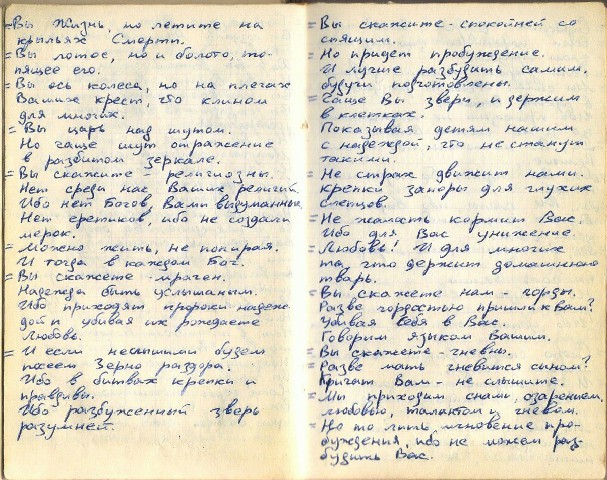 = Вы Жизнь, но летите на
крыльях Смерти.
= Вы лотос, но и болото, то-
пящее его.
= Вы ось колеса, но на плечах
Ваших крест, что клином
для многих.
= Вы царь над шутом.
Но чаще шут отражение
в разбитом зеркале.
= Вы скажите - религиозны.
Нет среди нас, Ваших религий.
Ибо нет Богов, Вами выдуманных
Нет еретиков, ибо не создали
мерок.
= Можно жить, не попирая.
И тогда в каждом Бог.
= Вы скажете - мрачен.
Надежда быть услышаным.
Ибо приходят пророки надеж-
дой и убивая их рождаете
Любовь.
= И если неслышимы будем
посеем Зерно раздора.
Ибо в битвах крепки и
правдивы.
Ибо разбуженный зверь
разумней.
= Вы скажите - спокойней со
спящим.
= Но придет пробуждение.
И лучше разбудить самим,
будучи подготовлены.
= Саше Вы звери, и держим
в клетках.
Показывая детям нашим
с надеждой, что не станут
такими.
= Не страх движит нами.
Крепки запоры для глухих
слепцов.
= Не жалость кормит Вас.
Ибо для Вас унижение.
= Любовь! И для многих
та, что держит домашнюю
тварь.
= Вы скажете нам - горды.
Разве гордостью пришли к Вам?
Убивая себя в Вас.
Говорим языком Вашим.
= Вы скажете - гневны.
= Разве мать гневится сыном?
Кричат Вам - не слышите.
= Мы приходим снами, озарением,
любовью, талантом и гневом.
= Но то лишь мгновение про-
буждения, ибо не можем раз-
будить Вас.